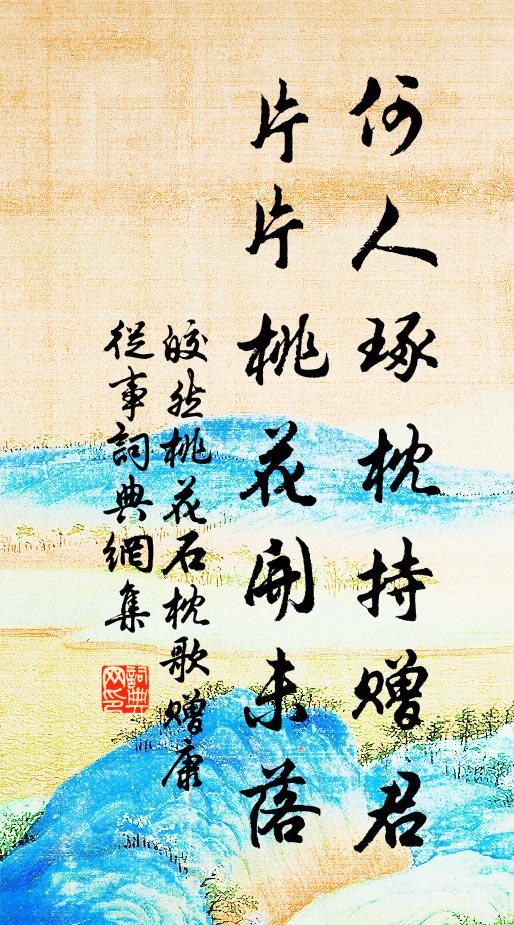 何人琢枕持贈君
片片桃花開未落
皎然桃花石枕歌贈康
從事詞典網集
詞典
网印